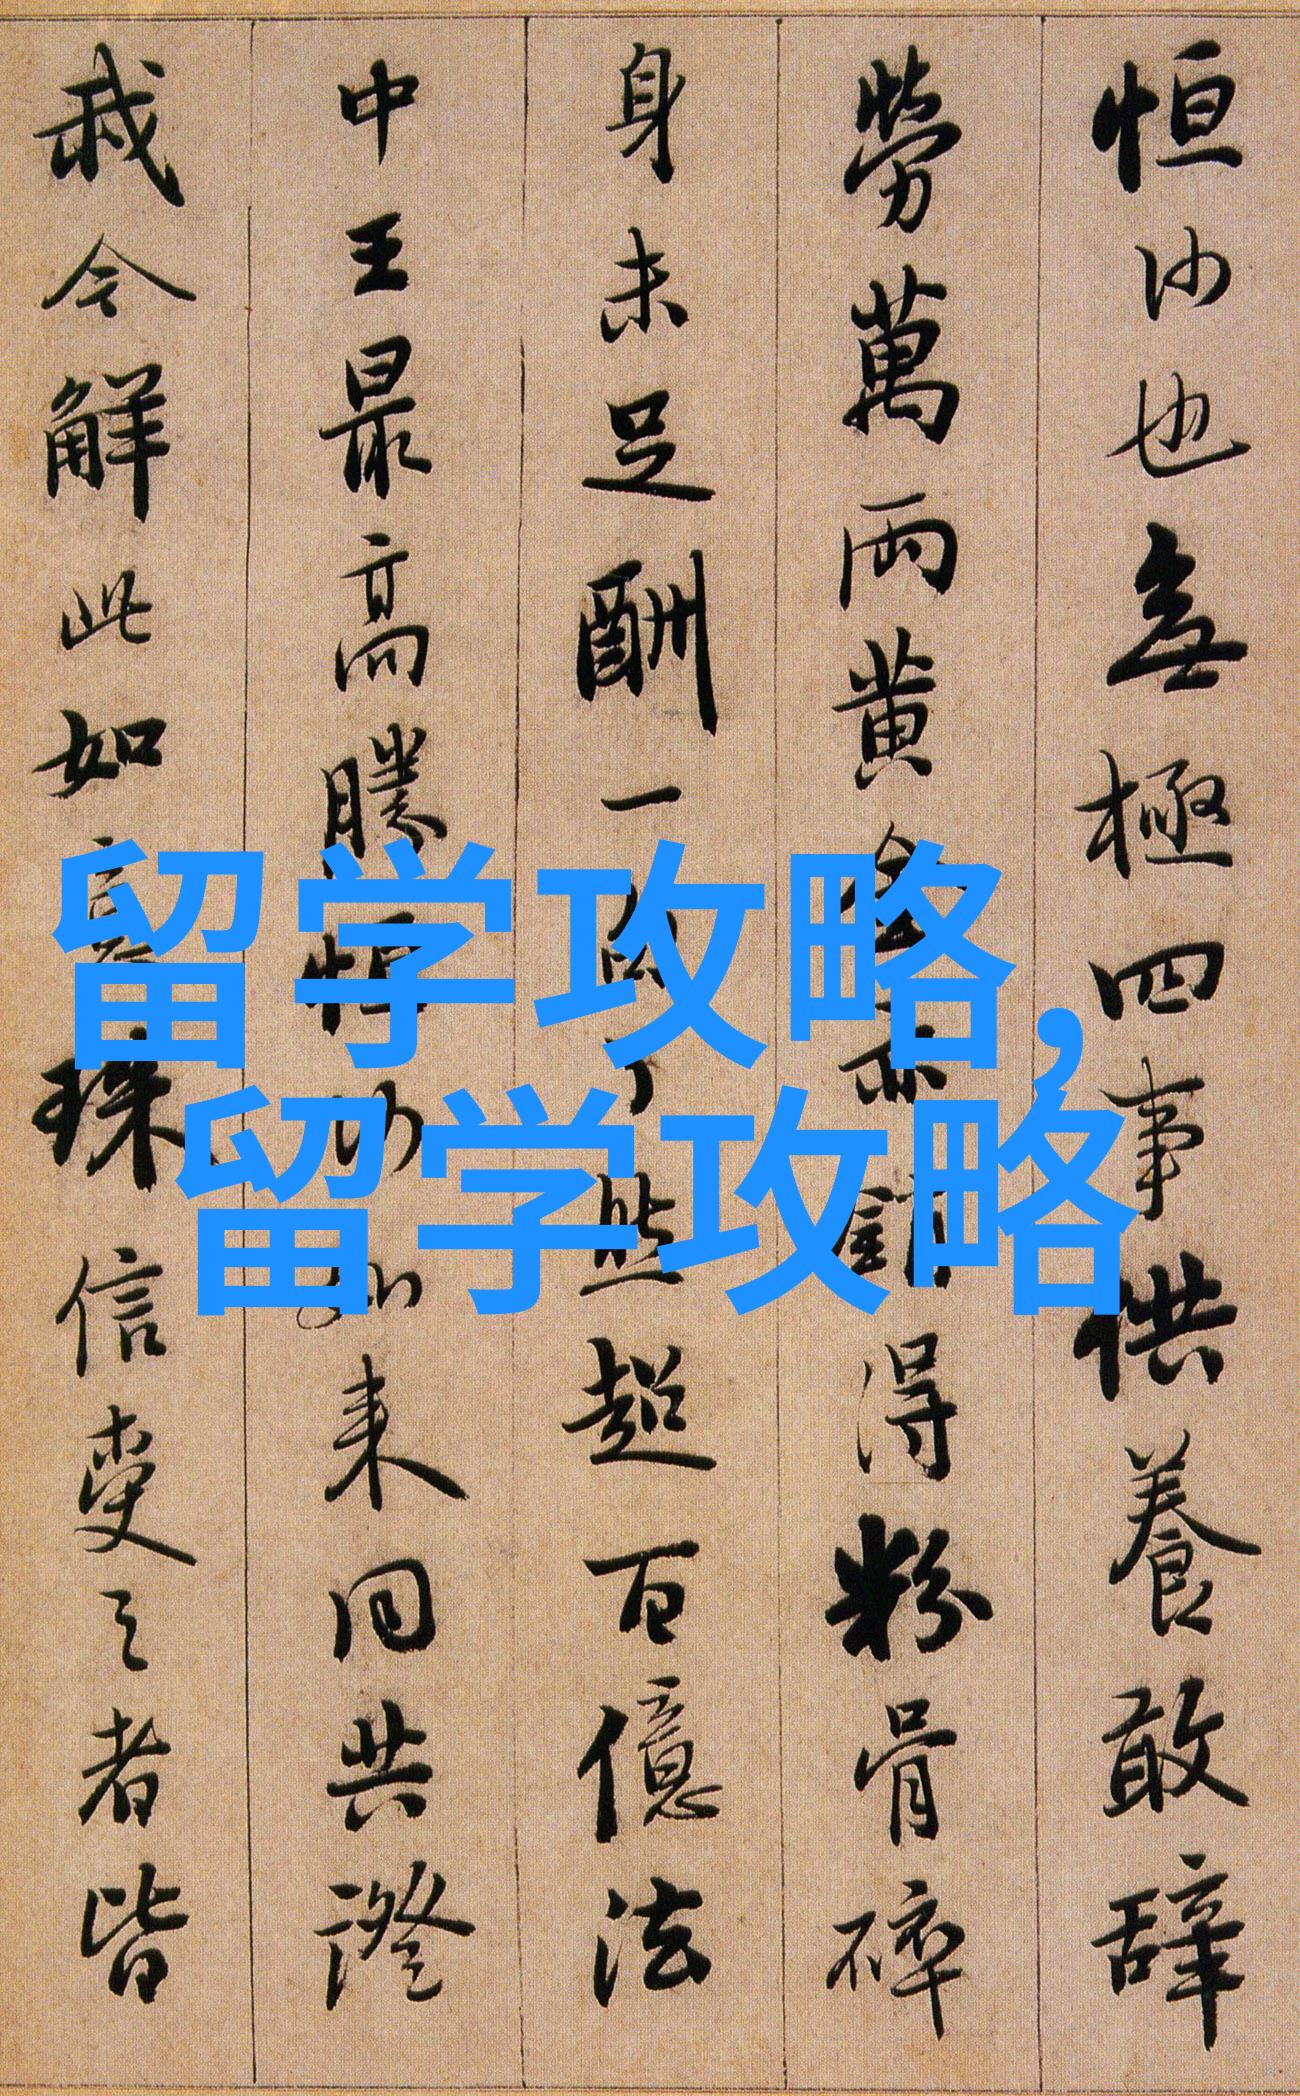 恒沙也無極四事供養敢辞
勞萬兩黃金亦銷得粉骨碎
身未足酬一句了然超百億法
中王最高勝恒沙如來同共證
我今解此如意珠信受之者皆
留学攻略,
留学攻略